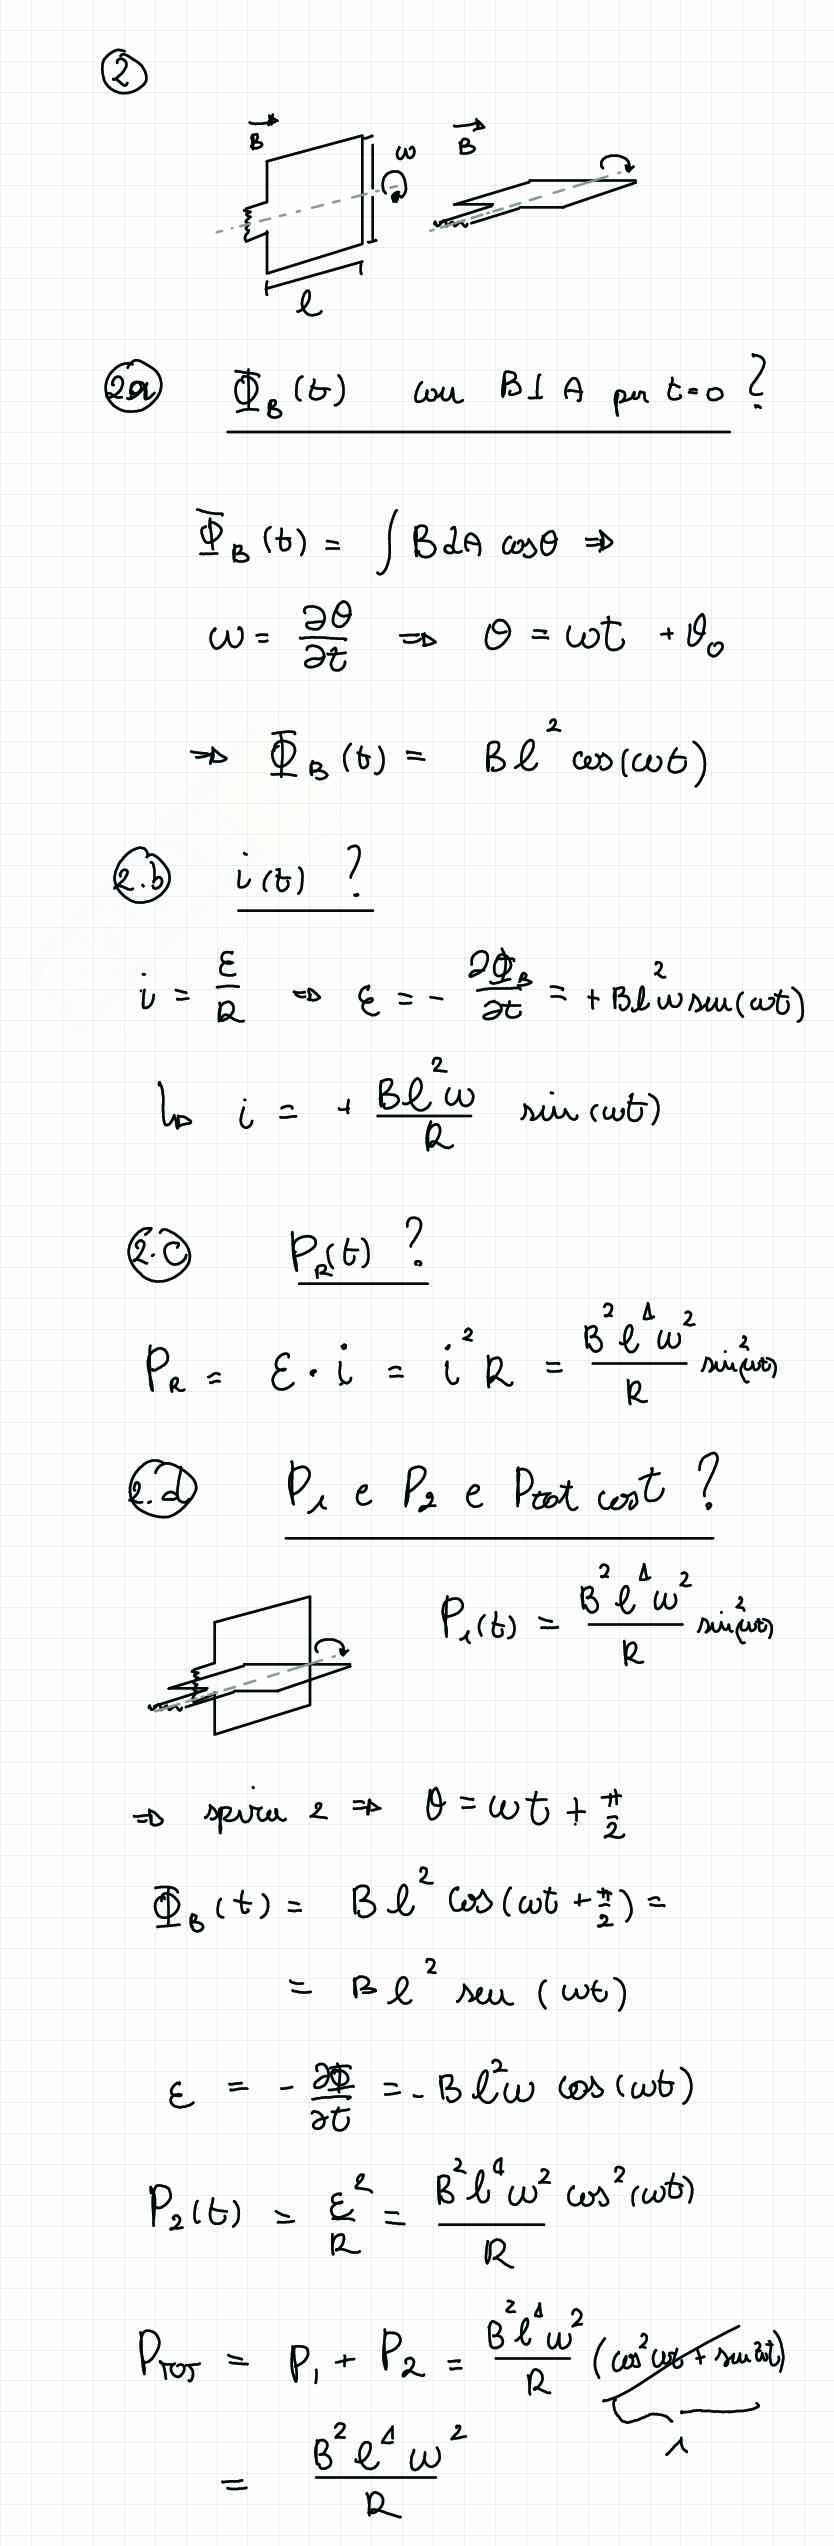 2
B
ω
B
l
2.a Φ_B (t) con B ⊥ A per t=0 ?
Φ_B (t) = ∫ B dA cosθ ⇒
ω = ∂θ/∂t ⇒ θ = ωt + θ₀
⇒ Φ_B (t) = B l² cos(ωt)
2.b i(t) ?
i = ε/R ⇒ ε = - ∂Φ_B/∂t = + Bl²ω sen(ωt)
↳ i = + Bl²ω/R sin(ωt)
2.c P_R(t) ?
P_R = ε · i = i² R = B² l⁴ ω²/R sin²(ωt)
2.d P₁ e P₂ e Ptot cost ?
P₁(t) = B² l⁴ ω²/R sin²(ωt)
⇒ spira 2 ⇒ θ = ωt + π/2
Φ_B (t) = B l² cos(ωt + π/2) =
= B l² sen (ωt)
ε = - ∂Φ/∂t = - B l² ω cos(ωt)
P₂(t) = ε²/R = B² l⁴ ω² cos²(ωt)/R
P_TOT = P₁ + P₂ = B² l⁴ ω²/R (cos²ωt + sin²ωt)
1
= B² l⁴ ω²/R